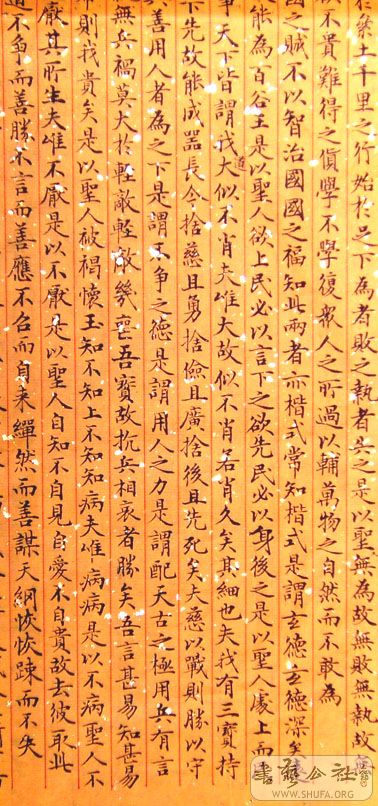 於累土千里之行始於足下為者敗之執者失之是以聖無為故無敗無執故
欲不貴難得之貨學不學復眾人之所過以輔萬物之自然而不敢為
國之賊不以智治國國之福知此兩者亦楷式常知楷式是謂玄德玄德深矣
能為百谷王是以聖人欲上民必以言下之欲先民必以身後之是以聖人處上而
爭天下皆謂我道大似不肖夫唯大故似不肖若肖久矣其細也夫我有三寶持
下先故能成器長今捨慈且勇捨儉且廣捨後且先死矣夫慈以戰則勝以守
善用人者為之下是謂不爭之德是謂用人之力是謂配天古之極用兵有言
無兵禍莫大於輕敵輕敵幾喪吾寶故抗兵相哀者勝矣吾言甚易知甚易
則我貴矣是以聖人被褐懷玉知不知上不知知病夫唯病病是以不病聖人不
厭其所生夫唯不厭是以不厭是以聖人自知不自見自愛不自貴故去彼取此
道不爭而善勝不言而善應不召而自來繟然而善謀天網恢恢踈而不失
書藝公社
WWW.SHUFA.ORG